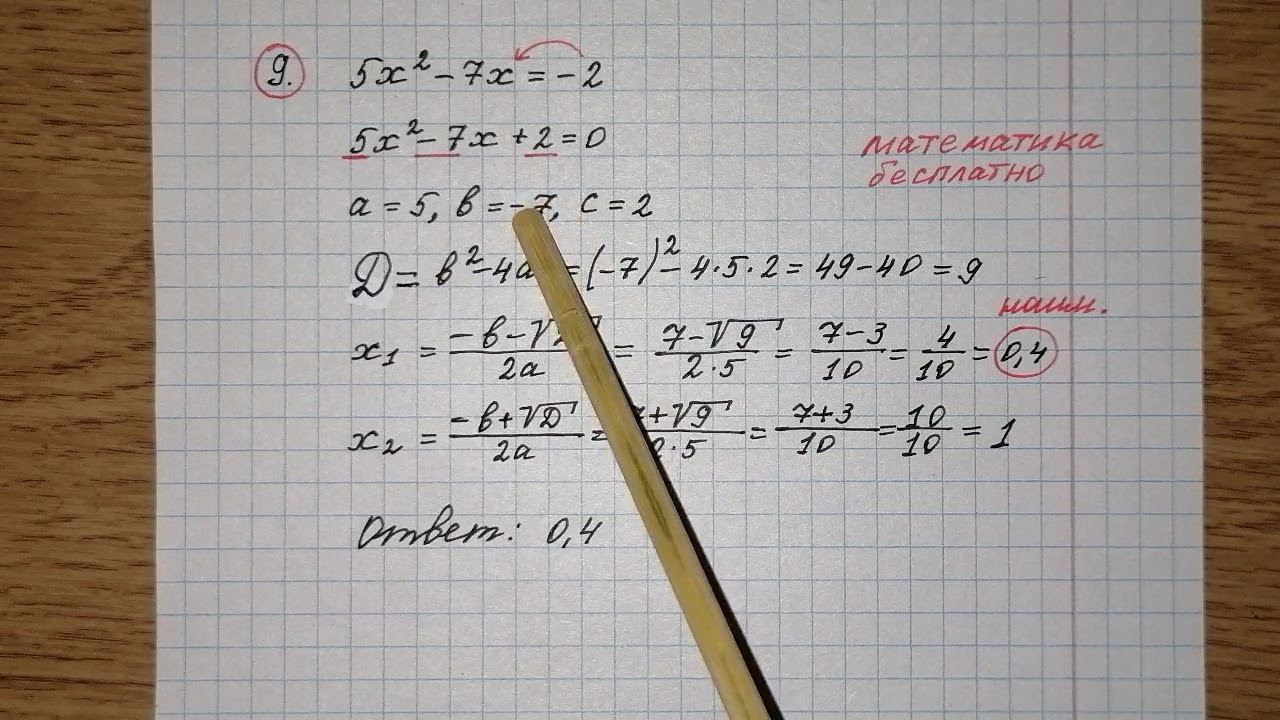 9. 5x² - 7x = -2
5x² - 7x + 2 = 0
математика
бесплатно
a = 5, в = -7, c = 2
Д = в² - 4a = (-7)² - 4·5·2 = 49 - 40 = 9
x₁ = (-в - √)/2a = (7 - √9)/(2·5) = (7 - 3)/10 = 4/10 = 0,4 наим.
x₂ = (-в + √Д)/2a = ( + √9)/(2·5) = (7 + 3)/10 = 10/10 = 1
Ответ: 0,4